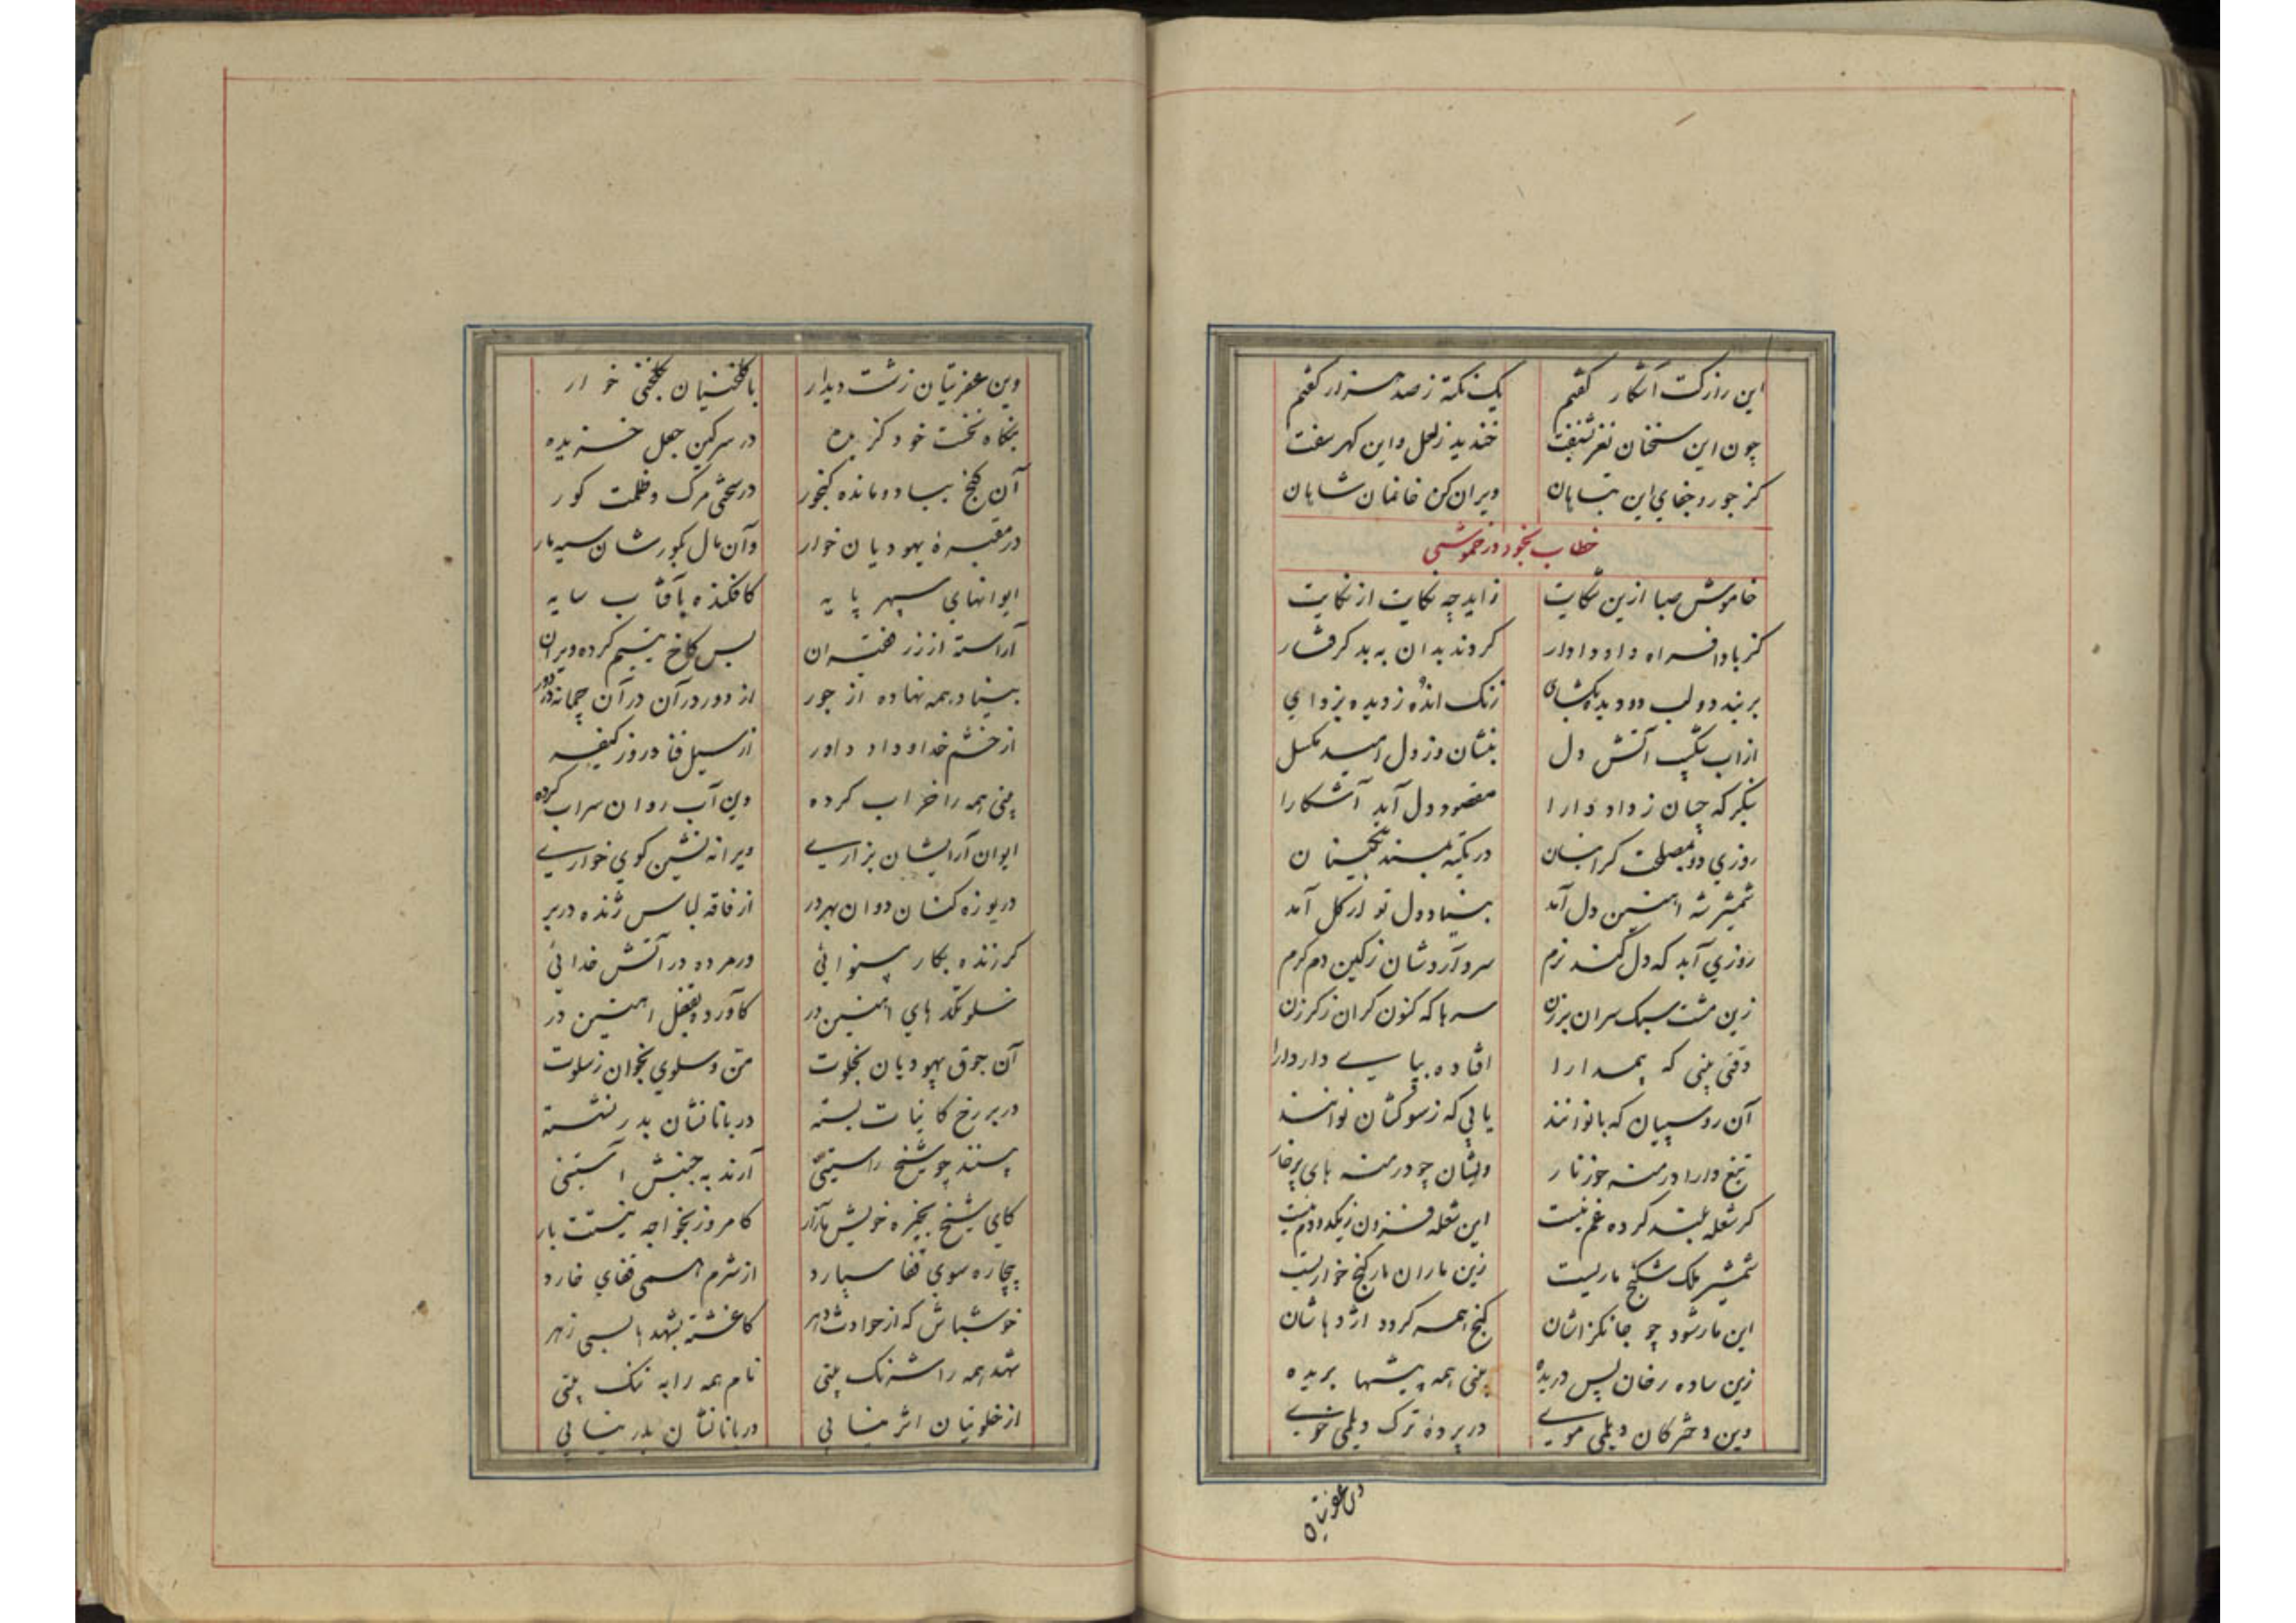 این راز کت آشکار کفتم یک نکته ز صد هزار کفتم
چون این سخنان نغز بشنفت خندید ز لعل و این کهر سفت
کز جور و جفای این تباهان ویران کن خانمان شاهان
خطاب بخود در خموشی
خاموش صبا ازین شکایت زاید چه نکایت از نکایت
کز بادافراه داد دادار کردند بدان به بد کرفتار
بربند دو لب دو دیده بکشای زنک انده ز دیده بزدای
از اب شکیب آتش دل بنشان وز دل امید مکسل
بنکر که چسان ز داد دارا مقصود دل آید آشکارا
روزی دو بمصلحت کر اینسان در تکیه مسند
شمشیر شه اهنین دل آمد بنیاد دل تو ار کل آمد
روزی آید که دل کند نرم سرد آرد شان ز کین دم کرم
زین مشت سبک سران برزن سرها که کنون کران ز کرزن
وقتی بینی که بیمدارا افتاده بپای دار دارا
آن روسپیان که بانوانند یابی که ز سوکشان نوانند
تیغ دارا درمنه خوز نار ویشان چو درمنه های پرخار
کر شعله بلند کرده غم نیست این شعله فزون ز یکدو دم نیست
شمشیر ملک شکنج ماریست زین ماران مار کنج خواریست
این مار شود چو جانکزاشان کنج همه کردد اژدهاشان
زین ساده رخان پس دریده بینی همه پیشها بریده
وین دخترکان دیلمی موی در پرده ترک دیلمی خوی
وین عفریتان
وین عفریتان زشت دیدار با کلخنیان کلخنی خوار
بنکاه نخست خود کزیده در سرکین جعل خزیده
آن کنج بباد و مانده کنجور در سختی مرک و ظلمت کور
در مقبره یهودیان خوار وآن مال بکورشان سیه مار
ایوانهای سپهر پایه کافکنده بآفتاب سایه
آراسته از زر فقیران بس کاخ یتیم کرده ویران
بنیاد همه نهاده از جور از دور در آن در آن چمانه در دور
از خشم خدا و داد داور از سیل فنا در روز کیفر
بینی همه را خراب کرده وین آب روان سراب کرده
ایوان آرایشان بزاری ویرانه نشین کوی خواری
دریوزه کنان دوان بهر در از فاقه لباس ژنده در بر
کر زنده بکار بینوائی ور مرده در آتش خدائی
خلوتکدهای اهنین در کآورده بقفل اهنین در
آن جوق یهودیان بخلوت من و سلوی بخوان ز سلوت
در بر رخ کاینات بسته دربانانشان بدر نشسته
بینند چو شیخ راستینی آرند به جنبش آستینی
کای شیخ بخیره خویش مازار کامروز بخواجه نیستت بار
بیچاره سوی قفا سپارد از شرم همی قفای خارد
خوشباش که از حوادث دهر کاغشته بشهد بابسی زهر
شهد همه را شرنک بینی نام همه را به ننک بینی
از خلوتیان اثر نیابی دربانانشان بدر نیابی